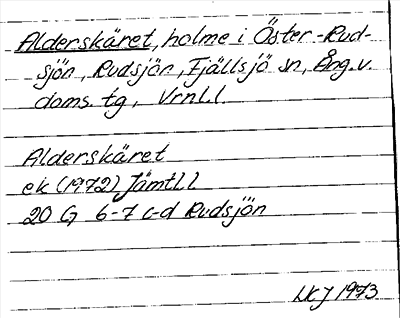 Alderskäret, holme i Öster-Rud-
sjön, Rudsjön, Fjällsjö sn, Ång.v.
doms. tg, Vrnl.l
Alderskäret
ek (1972) Jämtl.l
20 G 6-7 c-d Rudsjön
1973